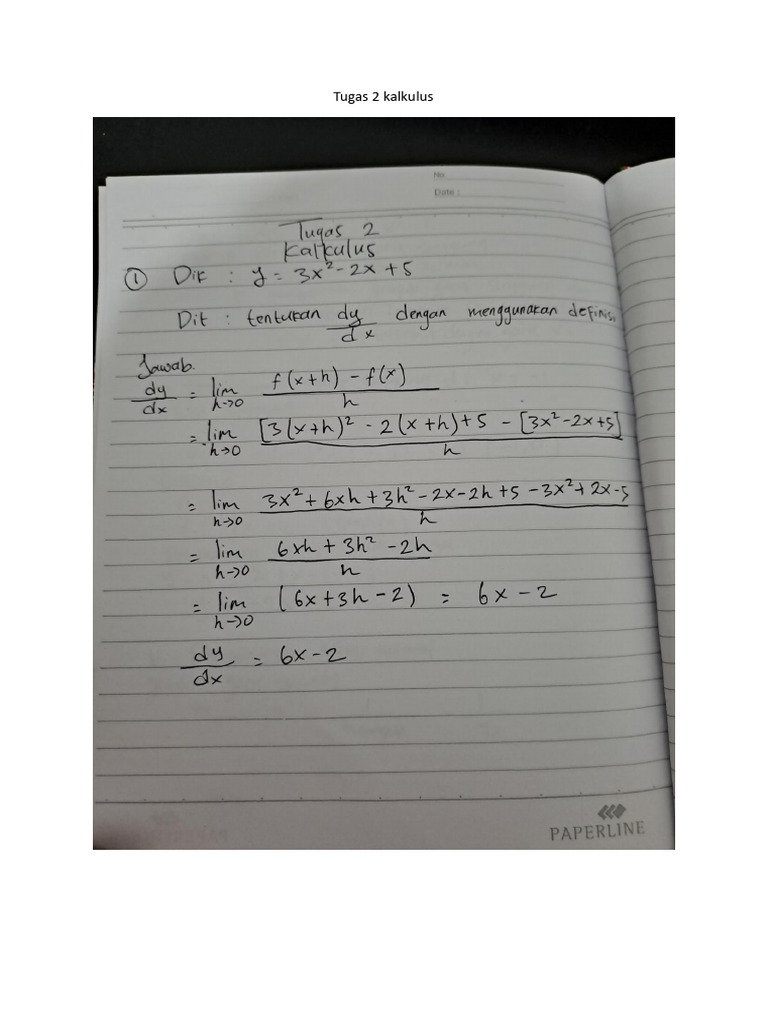 Tugas 2 kalkulus
No.
Date :
Tugas 2
Kalkulus
① Dik : y = 3x² - 2x + 5
Dit : tentukan dy/dx dengan menggunakan definisi
Jawab.
dy/dx = lim h→0 f(x+h) - f(x) / h
= lim h→0 [3(x+h)² - 2(x+h)+5 - [3x²-2x+5] / h
= lim h→0 3x² + 6xh + 3h² - 2x - 2h + 5 - 3x² + 2x - 5 / h
= lim h→0 6xh + 3h² - 2h / h
= lim h→0 (6x + 3h - 2) = 6x - 2
dy/dx = 6x - 2
PAPERLINE